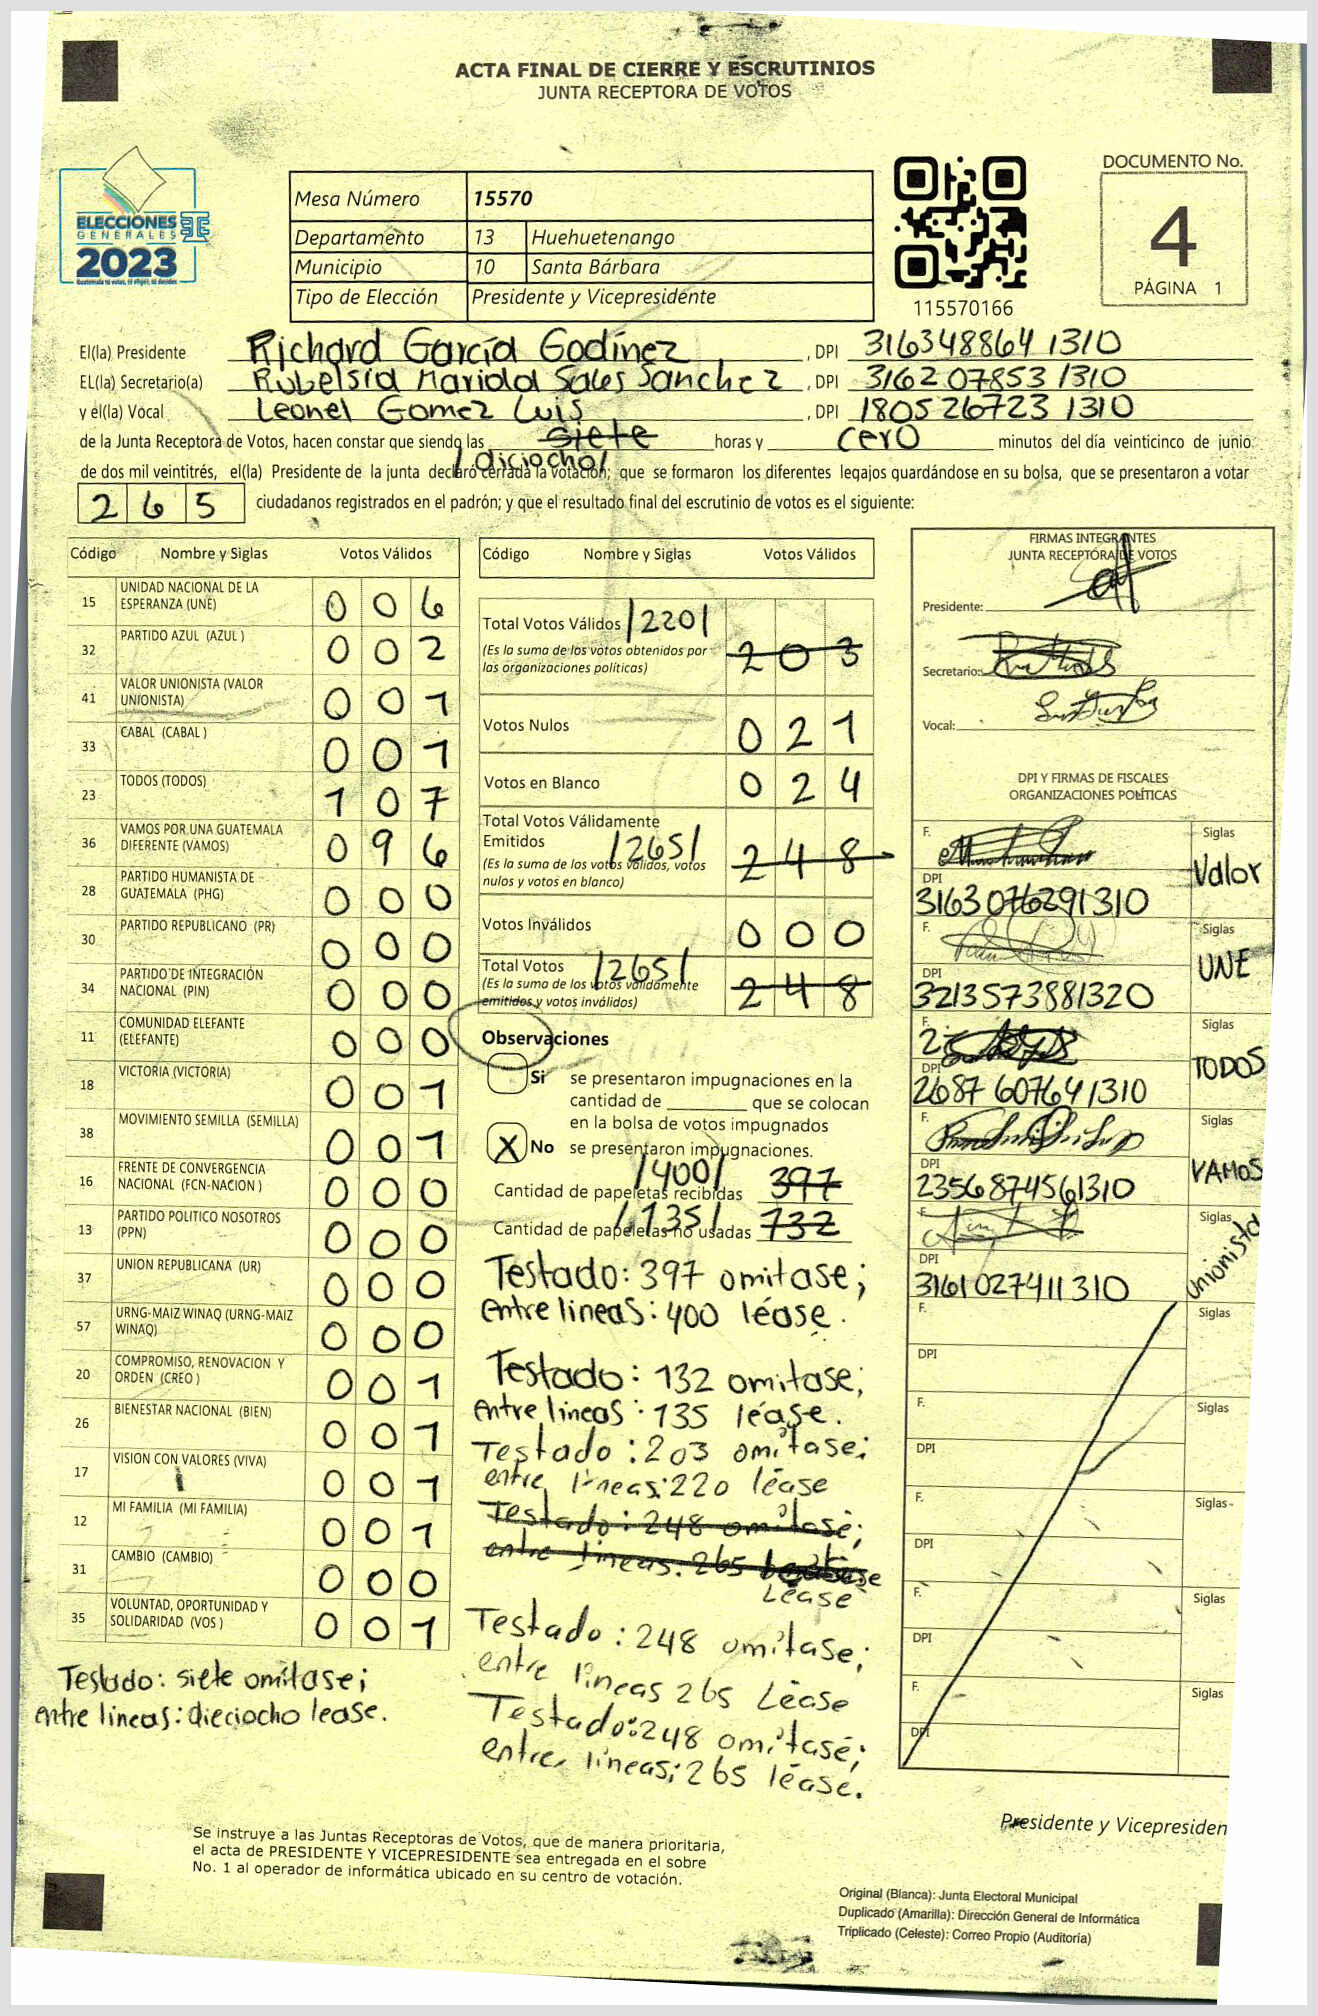 ACTA FINAL DE CIERRE Y ESCRUTINIOS
JUNTA RECEPTORA DE VOTOS
ELECCIONES
GENERALES
2023
Mesa Número 15570
Departamento 13 Huehuetenango
Municipio 10 Santa Bárbara
Tipo de Elección Presidente y Vicepresidente
115570166
DOCUMENTO No.
4
PÁGINA 1
El(la) Presidente Richard García Godínez , DPI 316348864 1310
EL(la) Secretario(a) Rubelsia Mariola Sales Sanchez , DPI 3162 07853 1310
y el(la) Vocal Leonel Gomez Luis , DPI 180526723 1310
de la Junta Receptora de Votos, hacen constar que siendo las siete horas y cero minutos del día veinticinco de junio
/diciocho/
de dos mil veintitrés, el(la) Presidente de la junta declaró cerrada la votación; que se formaron los diferentes legajos guardándose en su bolsa, que se presentaron a votar
265 ciudadanos registrados en el padrón; y que el resultado final del escrutinio de votos es el siguiente:
Código Nombre y Siglas Votos Válidos
15 UNIDAD NACIONAL DE LA ESPERANZA (UNE) 006
32 PARTIDO AZUL (AZUL ) 002
41 VALOR UNIONISTA (VALOR UNIONISTA) 001
33 CABAL (CABAL ) 001
23 TODOS (TODOS) 107
36 VAMOS POR UNA GUATEMALA DIFERENTE (VAMOS) 096
28 PARTIDO HUMANISTA DE GUATEMALA (PHG) 000
30 PARTIDO REPUBLICANO (PR) 000
34 PARTIDO DE INTEGRACIÓN NACIONAL (PIN) 000
11 COMUNIDAD ELEFANTE (ELEFANTE) 000
18 VICTORIA (VICTORIA) 001
38 MOVIMIENTO SEMILLA (SEMILLA) 001
16 FRENTE DE CONVERGENCIA NACIONAL (FCN-NACION ) 000
13 PARTIDO POLITICO NOSOTROS (PPN) 000
37 UNION REPUBLICANA (UR) 000
57 URNG-MAIZ WINAQ (URNG-MAIZ WINAQ) 000
20 COMPROMISO, RENOVACION Y ORDEN (CREO ) 001
26 BIENESTAR NACIONAL (BIEN) 001
17 VISION CON VALORES (VIVA) 001
12 MI FAMILIA (MI FAMILIA) 001
31 CAMBIO (CAMBIO) 000
35 VOLUNTAD, OPORTUNIDAD Y SOLIDARIDAD (VOS ) 001
Testado: siete omítase;
entre lineas: dieciocho lease.
Código Nombre y Siglas Votos Válidos
Total Votos Válidos /220/ 203
(Es la suma de los votos obtenidos por
las organizaciones políticas)
Votos Nulos 021
Votos en Blanco 024
Total Votos Válidamente
Emitidos /265/ 248
(Es la suma de los votos válidos, votos
nulos y votos en blanco)
Votos Inválidos 000
Total Votos /265/ 248
(Es la suma de los votos válidamente
emitidos y votos inválidos)
Observaciones
Si se presentaron impugnaciones en la
cantidad de ________ que se colocan
en la bolsa de votos impugnados
X No se presentaron impugnaciones.
Cantidad de papeletas recibidas /400/ 397
Cantidad de papeletas no usadas /135/ 132
Testado: 397 omitase;
Entre lineas: 400 léase.
Testado: 132 omitase;
Entre lineas: 135 léase.
Testado: 203 omítase;
entre líneas: 220 léase
Testado: 248 omítase;
entre líneas: 265
Léase
Testado: 248 omítase;
entre líneas 265 Léase
Testado: 248 omítase;
entre líneas; 265 léase.
FIRMAS INTEGRANTES
JUNTA RECEPTORA DE VOTOS
Presidente:
Secretario:
Vocal:
DPI Y FIRMAS DE FISCALES
ORGANIZACIONES POLÍTICAS
F. Siglas
DPI Valor
3163076291310
F. Siglas
DPI UNE
3213573881320
F. Siglas
DPI TODOS
2687 607641310
F. Siglas
DPI VAMOS
2356874561310
F. Siglas
DPI unionista
3161027411310
F. Siglas
DPI
F. Siglas
DPI
F. Siglas
DPI
F. Siglas
DPI
F. Siglas
DPI
Presidente y Vicepresiden
Se instruye a las Juntas Receptoras de Votos, que de manera prioritaria,
el acta de PRESIDENTE Y VICEPRESIDENTE sea entregada en el sobre
No. 1 al operador de informática ubicado en su centro de votación.
Original (Blanca): Junta Electoral Municipal
Duplicado (Amarilla): Dirección General de Informática
Triplicado (Celeste): Correo Propio (Auditoría)